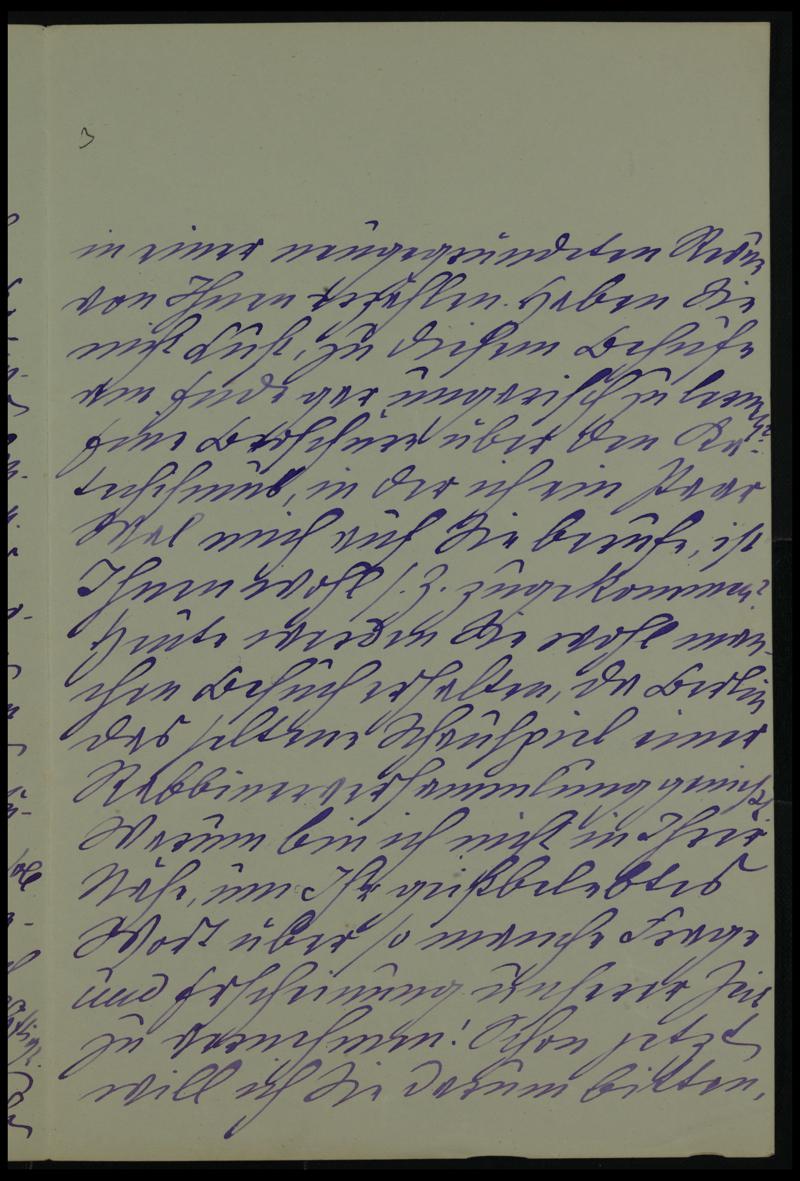 3
in einer neugegründeten Revue
von Ihnen erzählen. Haben Sie
nicht Lust, zu diesem Behufe
am Ende gar ungarisch zu lernen?
Eine Broschüre über den Ka-
techismus, in der ich ein Paar
Mal mich auf Sie berufe, ist
Ihnen wohl s. Z. zugekommen?
Heute werden Sie wohl man-
chen Besuch erhalten, da Berlin
das seltene Schauspiel einer
Rabbinerversammlung genießt.
Warum bin ich nicht in Ihrer
Nähe, um Ihr geistbelebtes
Wort über so manche Frage
und Erscheinung unserer Zeit
zu vernehmen! Schon jetzt
will ich Sie darum bitten,